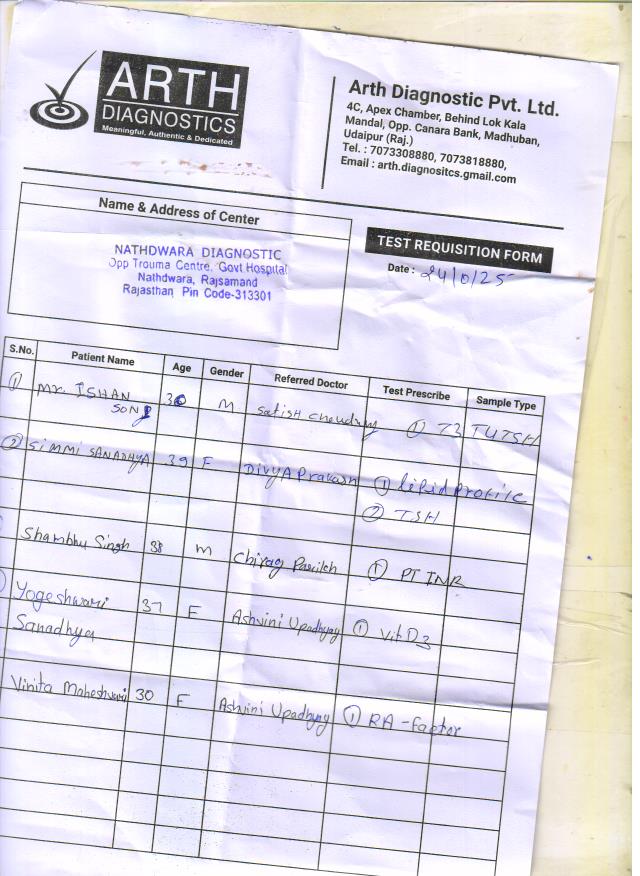 ARTH
DIAGNOSTICS
Meaningful, Authentic & Dedicated
Arth Diagnostic Pvt. Ltd.
4C, Apex Chamber, Behind Lok Kala
Mandal, Opp. Canara Bank, Madhuban,
Udaipur (Raj.)
Tel. : 7073308880, 7073818880,
Email : arth.diagnositcs.gmail.com
Name & Address of Center
NATHDWARA DIAGNOSTIC
Opp Trouma Centre, Govt Hospital
Nathdwara, Rajsamand
Rajasthan Pin Code-313301
TEST REQUISITION FORM
Date : 24/0/25
S.No. Patient Name Age Gender Referred Doctor Test Prescribe Sample Type
① Mr. ISHAN 30 M Satish Choudhary ① T3 T4 TSH
SONI
② SIMMI SANADHYA 39 F Divya Prakash ① lipid profile
② TSH
Shambhu Singh 38 M Chirag ① PT INR
Yogeshwari 37 F Ashvini Upadhyay ① Vit D3
Sanadhya
Vinita Maheshwari 30 F Ashvini Upadhyay ① RA-factor